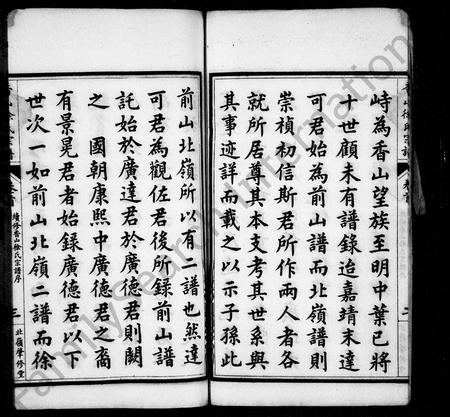 峙為香山望族至明中葉已將
十世顧未有譜錄迨嘉靖末達
可君始為前山譜而北嶺譜則
崇禎初信斯君所作兩人者各
就所居尊其本支考其世系與
其事迹詳而載之以示子孫此
二
前山北嶺所以有二譜也然達
可君為觀佐君後所錄前山譜
託始於廣達君於廣德君則闕
之 國朝康熙中廣德君之裔
有景晃君者始錄廣德君以下
世次一如前山北嶺二譜而徐
香山徐氏宗譜
卷首
續修香山徐氏宗譜序
三
北嶺肇修堂
FamilySearch International